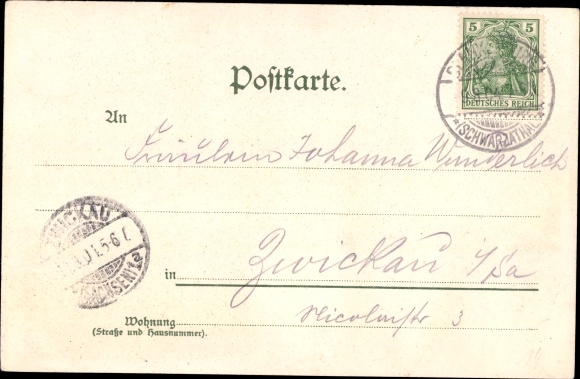 5 5
DEUTSCHES REICH
(SCHWARZATHAL)
Postkarte.
An
Fräulein Johanna Wunderlich
ZWICKAU
5-6 N.
(SACHSEN) 1a
in Zwickau i/Sa
Wohnung Nicolaistr 3
(Straße und Hausnummer).